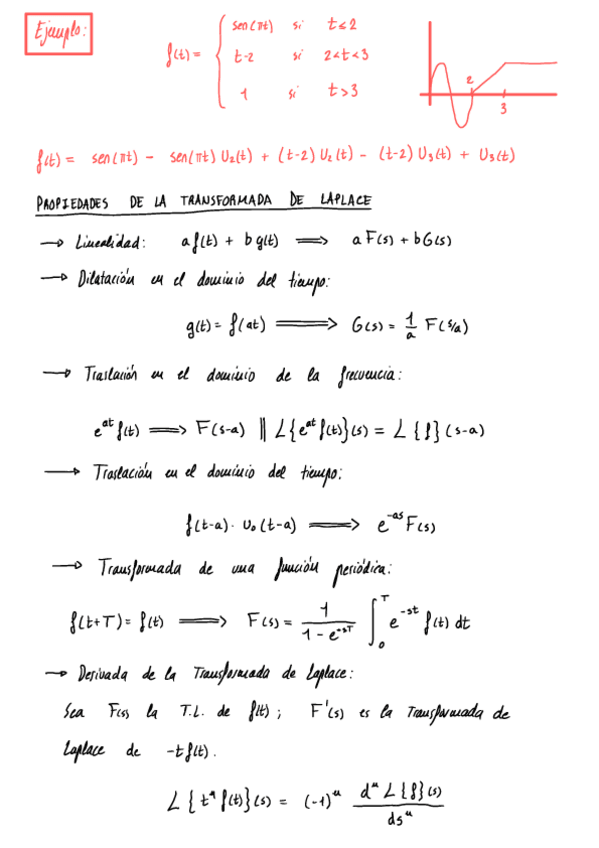 Ejemplo:
f(t) = { sen(πt) si t≤2
t-2 si 2<t<3
1 si t>3
2
3
f(t) = sen(πt) - sen(πt) U₂(t) + (t-2) U₂(t) - (t-2) U₃(t) + U₃(t)
PROPIEDADES DE LA TRANSFORMADA DE LAPLACE
→ Linealidad: a f(t) + b g(t) ⟹ a F(s) + b G(s)
→ Dilatación en el dominio del tiempo:
g(t) = f(at) ⟹ G(s) = 1/a F(s/a)
→ Traslación en el dominio de la frecuencia:
e^at f(t) ⟹ F(s-a) || L{e^at f(t)}(s) = L{f}(s-a)
→ Traslación en el dominio del tiempo:
f(t-a) · U₀(t-a) ⟹ e^-as F(s)
→ Transformada de una función periódica:
f(t+T) = f(t) ⟹ F(s) = 1/(1 - e^-sT) ∫₀^T e^-st f(t) dt
→ Derivada de la Transformada de Laplace:
Sea F(s) la T.L. de f(t); F'(s) es la Transformada de
Laplace de -t f(t).
L{t^n f(t)}(s) = (-1)^n d^n L{f}(s)/ds^n